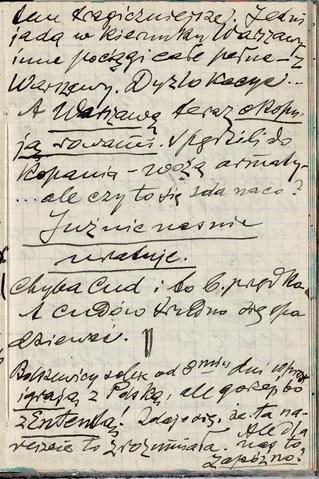 tem tragiczniejszej. Jedni
jadą w kierunku Warszawy
inne pociągi całe pełne – z
Warszawy. Dyzlokacya...
A Warszawę teraz okopu-
ją rowami. Spędzili do
kopania – wożą armaty –
...ale czy to się zda na co?
Już nic nas nie
uratuje.
Chyba cud i to b. prędko.
A cudów trudno się spo
dziewać.
Bolszewicy od 8miu dni
igrają z Polską, ale gorzej bo
z Ententą! Zdaje się, że ta na-
reszcie to zrozumiała. Ale dla
nas to
zapóźno?